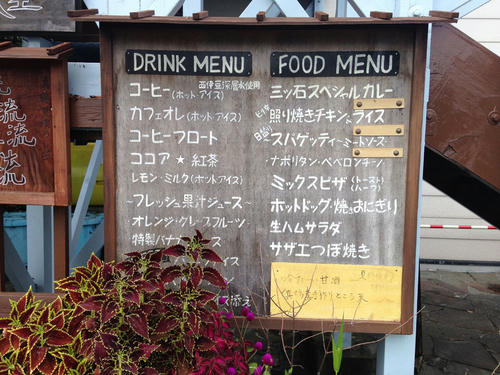 DRINK MENU
コーヒー(ホット・アイス)
西伊豆深層水使用
カフェオレ(ホット・アイス)
コーヒーフロート
ココア★紅茶
レモン・ミルク(ホット・アイス)
~フレッシュ果汁ジュース~
オレンジ・グレープフルーツ
特製バナナ
イス
添え
FOOD MENU
三ッ石スペシャルカレー
照り焼きチキン&ライス
スパゲッティーミートソース
ナポリタン・ペペロンチーノ
ミックスピザ(トースト)
(ハーフ)
ホットドッグ・焼おにぎり
生ハムサラダ
サザエつぼ焼き
甘酒
ところ天
流
流
流